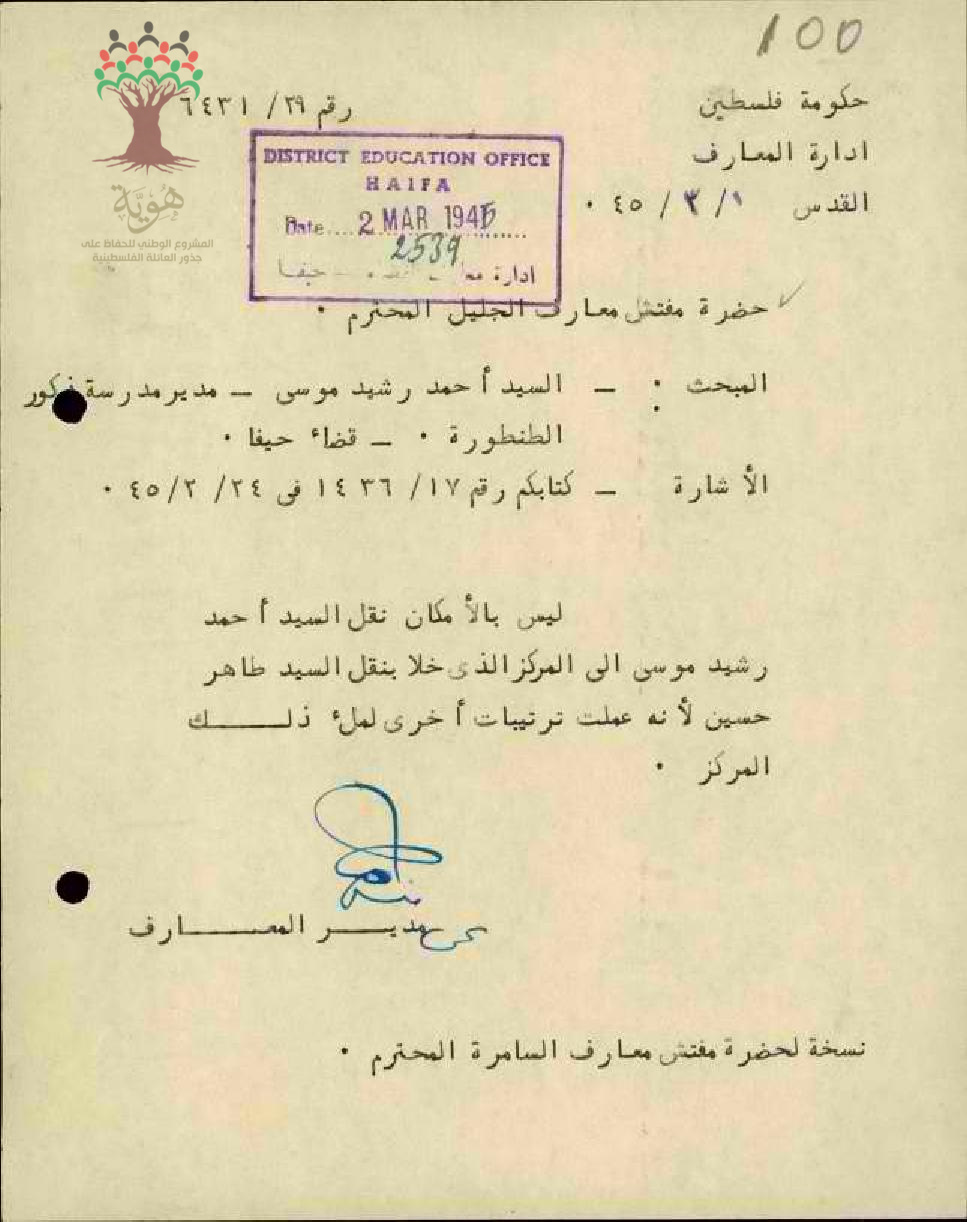 100
حكومة فلسطين
رقم ٢٩/ ٦٤٣١
ادارة المعارف
القدس ١/ ٣/ ٤٥ ٠
هُوِيَّة
المشروع الوطني للحفاظ على
جذور العائلة الفلسطينية
DISTRICT EDUCATION OFFICE
HAIFA
Date.... 2 MAR 1945
2539
ادارة حيفا
حضرة مفتش معارف الجليل المحترم ٠
المبحث : — السيد أحمد رشيد موسى — مدير مدرسة ذكور
الطنطورة ٠ — قضاء حيفا ٠
الأشارة — كتابكم رقم ١٧/ ١٤٣٦ فى ٢٤/ ٢/ ٤٥ ٠
ليس بالأمكان نقل السيد أحمد
رشيد موسى الى المركز الذى خلا بنقل السيد طاهر
حسين لأنه عملت ترتيبات أخرى لملء ذلـــك
المركز ٠
عن مديـــر المعـــارف
نسخة لحضرة مفتش معارف السامرة المحترم ٠